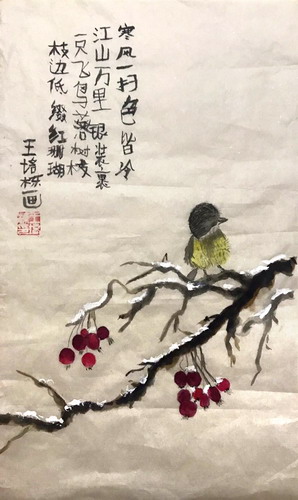 寒风一扫色皆冷
江山万里银装裹
一只飞鸟落树枝
枝边低缀红珊瑚
王培栋画